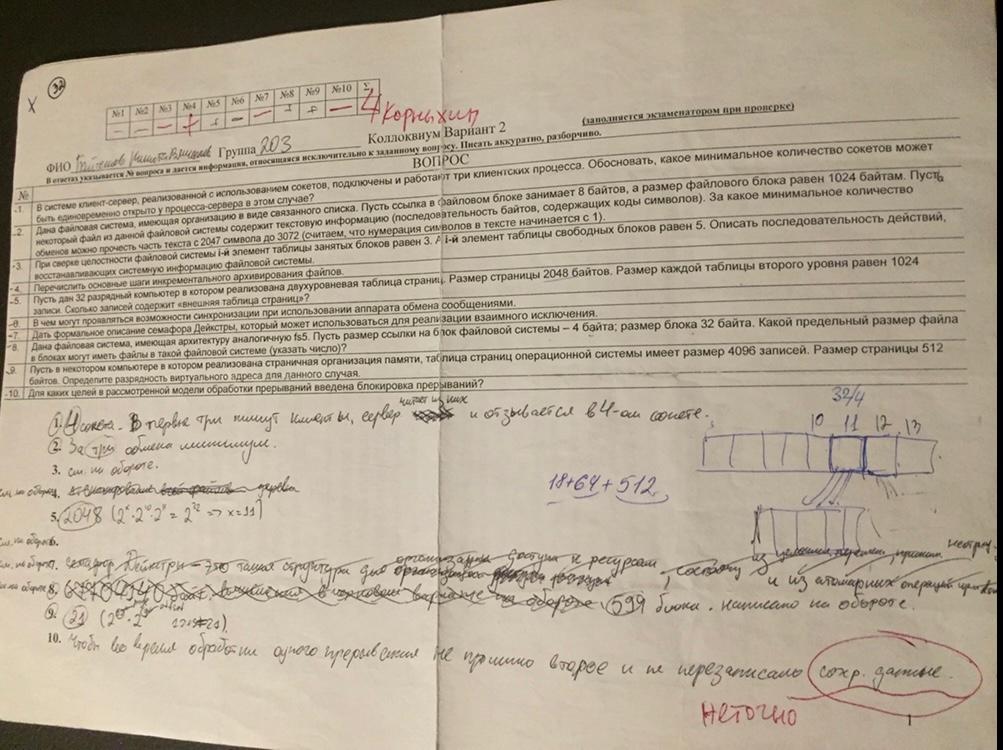 32
X
№1 №2 №3 №4 №5 №6 №7 №8 №9 №10 Σ
– – – + + – – + + – 4
Корныхин
Коллоквиум Вариант 2
(заполняется экзаменатором при проверке)
ФИО Группа 203
В ответах указывается № вопроса и дается информация, относящаяся исключительно к заданному вопросу. Писать аккуратно, разборчиво.
№ ВОПРОС
-1. В системе клиент-сервер, реализованной с использованием сокетов, подключены и работают три клиентских процесса. Обосновать, какое минимальное количество сокетов может
быть единовременно открыто у процесса-сервера в этом случае?
-2. Дана файловая система, имеющая организацию в виде связанного списка. Пусть ссылка в файловом блоке занимает 8 байтов, а размер файлового блока равен 1024 байтам. Пусть
некоторый файл из данной файловой системы содержит текстовую информацию (последовательность байтов, содержащих коды символов). За какое минимальное количество
обменов можно прочесть часть текста с 2047 символа до 3072 (считаем, что нумерация символов в тексте начинается с 1).
-3. При сверке целостности файловой системы i-й элемент таблицы занятых блоков равен 3. А i-й элемент таблицы свободных блоков равен 5. Описать последовательность действий,
восстанавливающих системную информацию файловой системы.
-4. Перечислить основные шаги инкрементального архивирования файлов.
-5. Пусть дан 32 разрядный компьютер в котором реализована двухуровневая таблица страниц. Размер страницы 2048 байтов. Размер каждой таблицы второго уровня равен 1024
записи. Сколько записей содержит «внешняя таблица страниц»?
-6. В чем могут проявляться возможности синхронизации при использовании аппарата обмена сообщениями.
-7. Дать формальное описание семафора Дейкстры, который может использоваться для реализации взаимного исключения.
-8. Дана файловая система, имеющая архитектуру аналогичную fs5. Пусть размер ссылки на блок файловой системы – 4 байта; размер блока 32 байта. Какой предельный размер файла
в блоках могут иметь файлы в такой файловой системе (указать число)?
-9. Пусть в некотором компьютере в котором реализована страничная организация памяти, таблица страниц операционной системы имеет размер 4096 записей. Размер страницы 512
байтов. Определите разрядность виртуального адреса для данного случая.
-10. Для каких целей в рассмотренной модели обработки прерываний введена блокировка прерываний?
32/4
10 11 12 13
1. 4 сокета. В первые три пишут клиенты, сервер читает из них и отзывается в 4-ом сокете.
2. За три обмена минимум.
3. см. на обороте.
18+64+512
см. на обороте 4.
5. 2048 (2ˣ·2¹⁰·2¹¹ = 2³² => x=11)
см. на обороте 6.
см. на обороте 7. семафор Дейкстры – это такая структура для доступа к ресурсам, и из атомарных операций
8. 599 блока. написано на обороте.
9. 21
10. Чтобы во время обработки одного прерывания не пришло второе и не перезаписало сохр. данные.
неточно